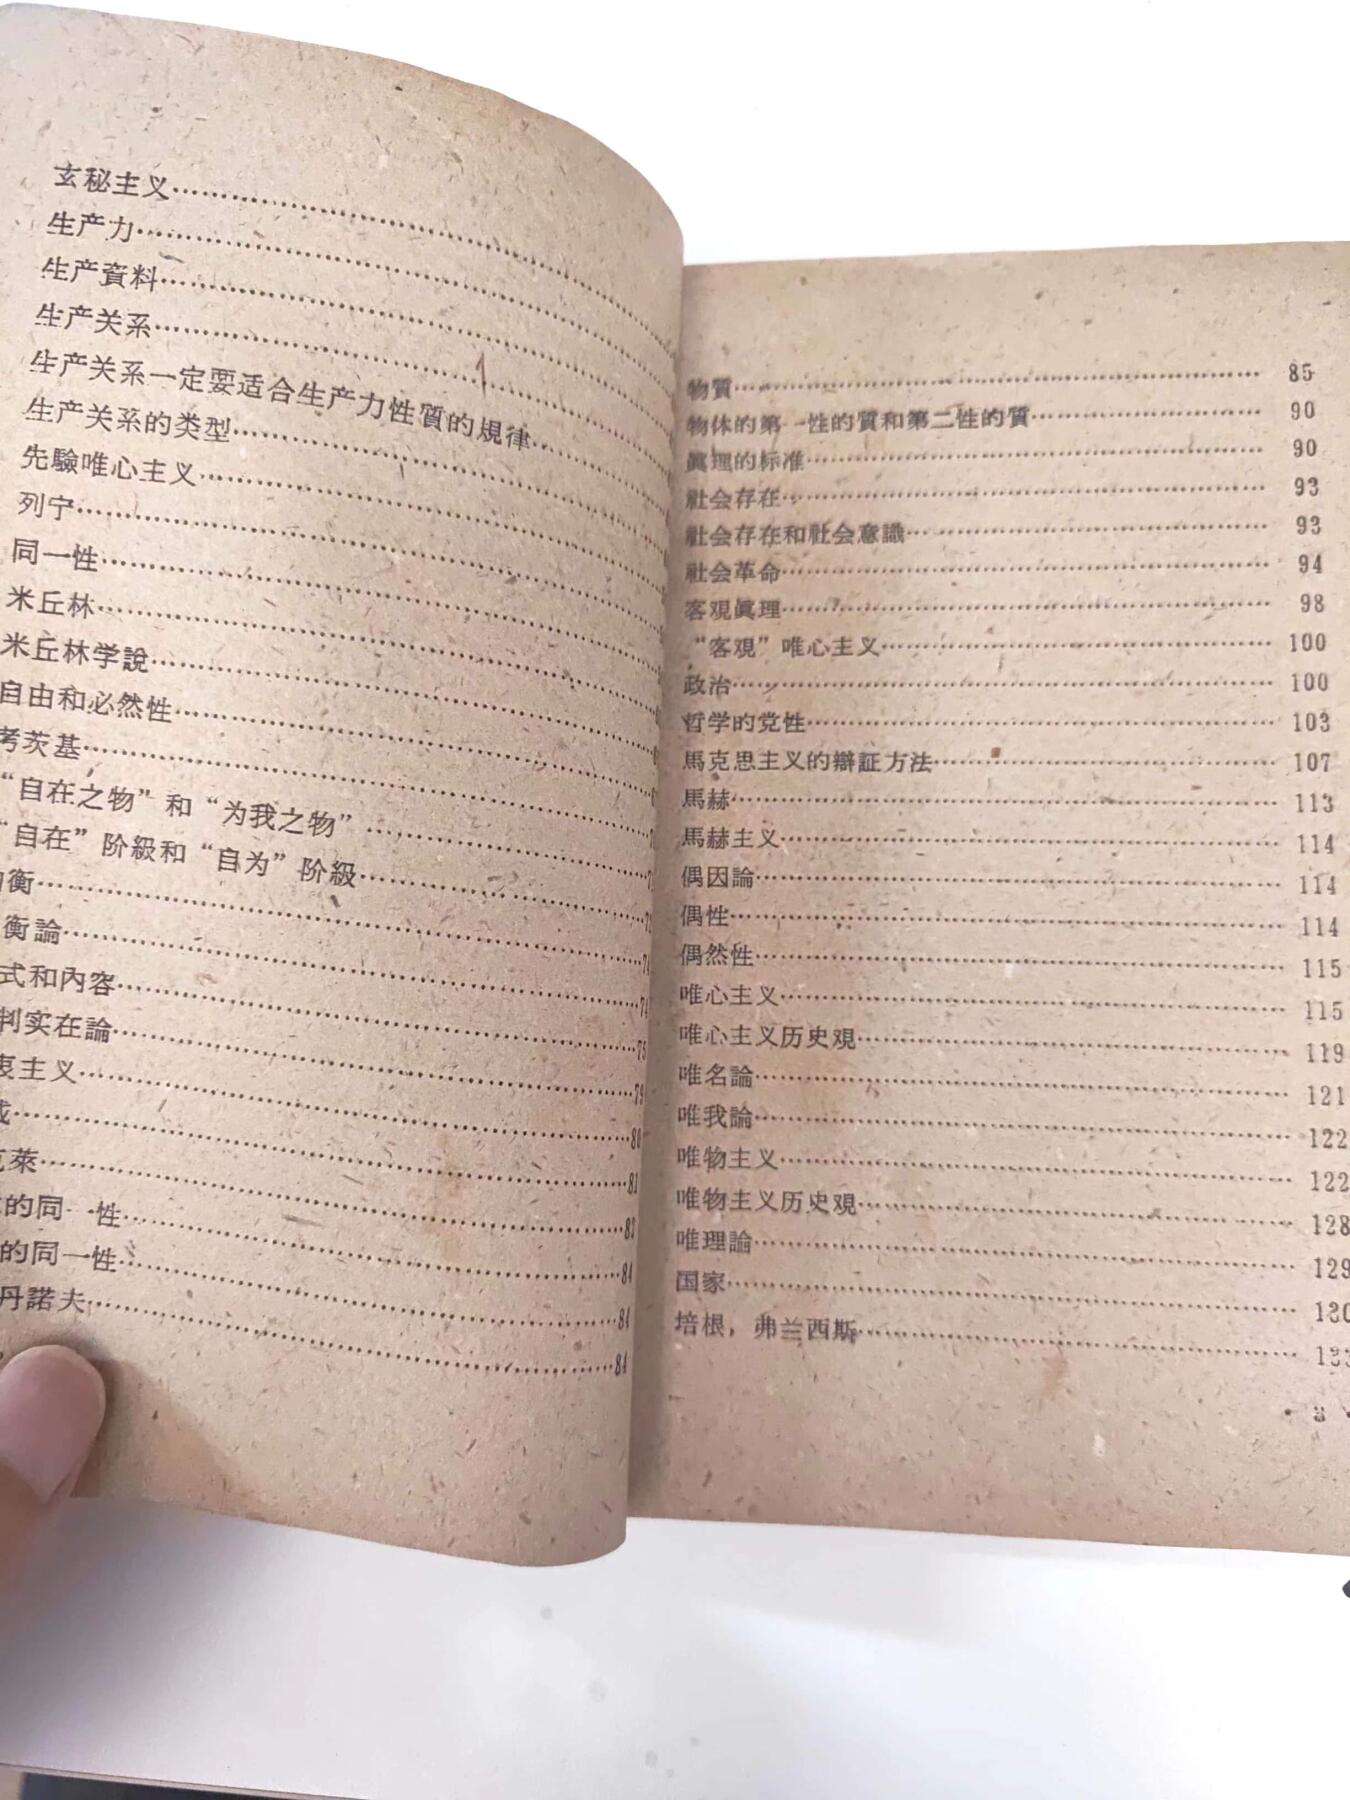 玄秘主义
生产力
生产資料
生产关系
生产关系一定要适合生产力性質的規律
生产关系的类型
先驗唯心主义
列宁
同一性
米丘林
米丘林学說
自由和必然性
考茨基
“自在之物”和“为我之物”
“自在”阶級和“自为”阶級
衡
衡論 74
式和內容 74
判实在論 75
衷主义 79
80
克萊 81
的同一性 83
的同一性 84
丹諾夫 84
84
物質 85
物体的第一性的質和第二性的質 90
眞理的标准 90
社会存在 93
社会存在和社会意識 93
社会革命 94
客观眞理 98
“客观”唯心主义 100
政治 100
哲学的党性 103
馬克思主义的辯証方法 107
馬赫 113
馬赫主义 114
偶因論 114
偶性 114
偶然性 115
唯心主义 115
唯心主义历史观 119
唯名論 121
唯我論 122
唯物主义 122
唯物主义历史观 128
唯理論 129
国家 130
培根，弗兰西斯 133
· 3 ·